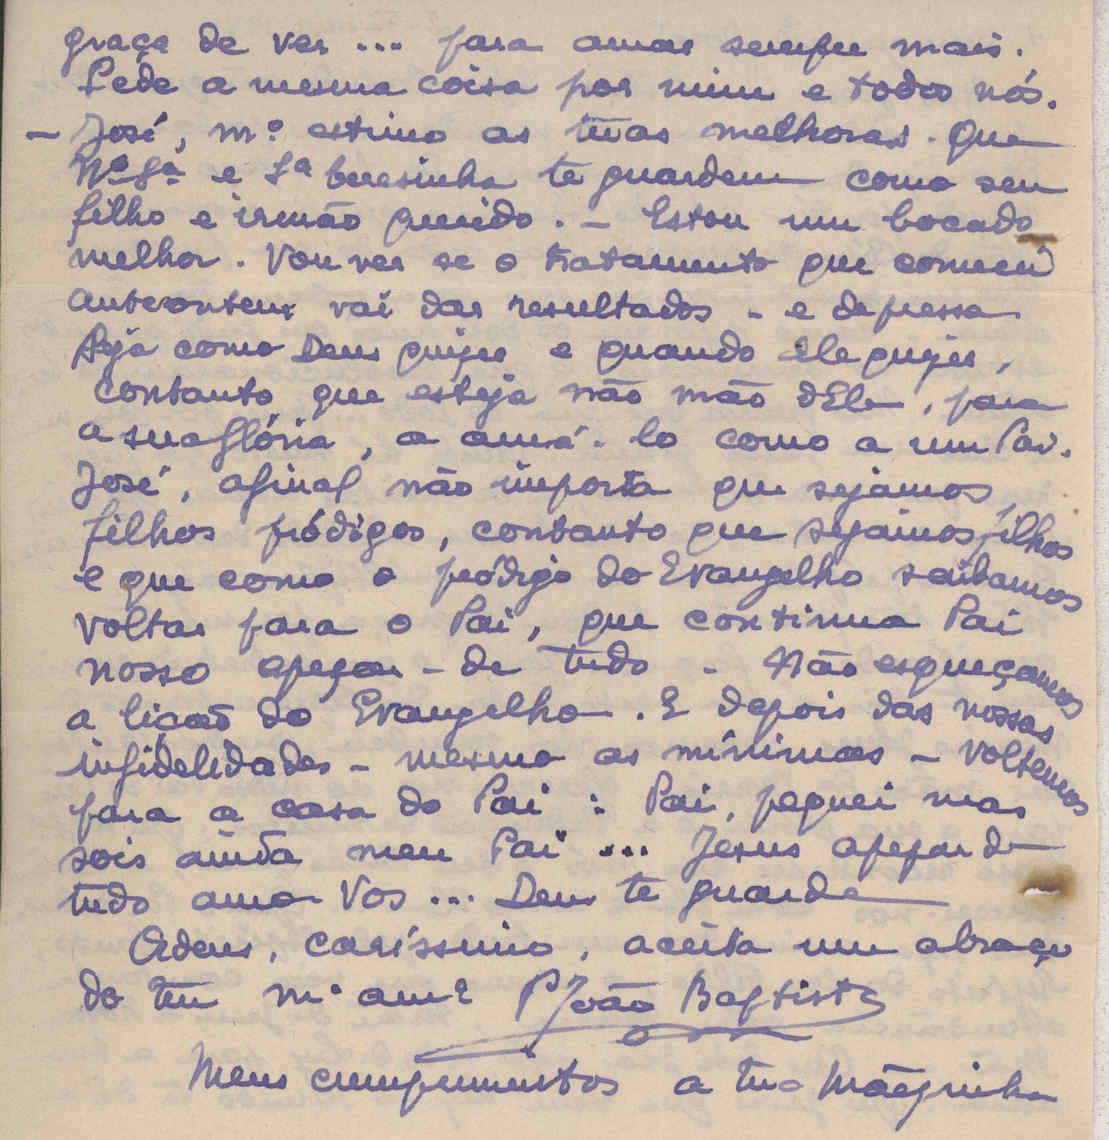 graça de ver ... para amar sempre mais.
Pede a mesma coisa por mim e todos nós.
- José, m.º estimo as tuas melhoras. Que
N.ª S.ª e S.ta Teresinha te guardem como seu
filho e irmão querido. - Estou um bocado
melhor. Vou ver se o tratamento que comecei
anteontem vai dar resultados - e depressa
Seja como Deus quizer e quando Ele quizer,
contanto que esteja não mão dEle, para
a sua glória, a amá-lo como a um Pai.
José, afinal não importa que sejamos
filhos pródigos, contanto que sejamos filhos
e que como o pródigo do Evangelho saibamos
voltar para o Pai, que continua Pai
nosso apezar-de tudo - Não esqueçamos
a lição do Evangelho. E depois das nossas
infidelidades - mesmo as mínimas - voltemos
para a casa do Pai: Pai, pequei mas
sois ainda meu Pai ... Jesus apezar de
tudo amo-Vos ... Deus te guarde
Adeus, caríssimo, aceita um abraço
do teu m.º am.º P. João Baptista
Meus cumprimentos a tua Mãezinha